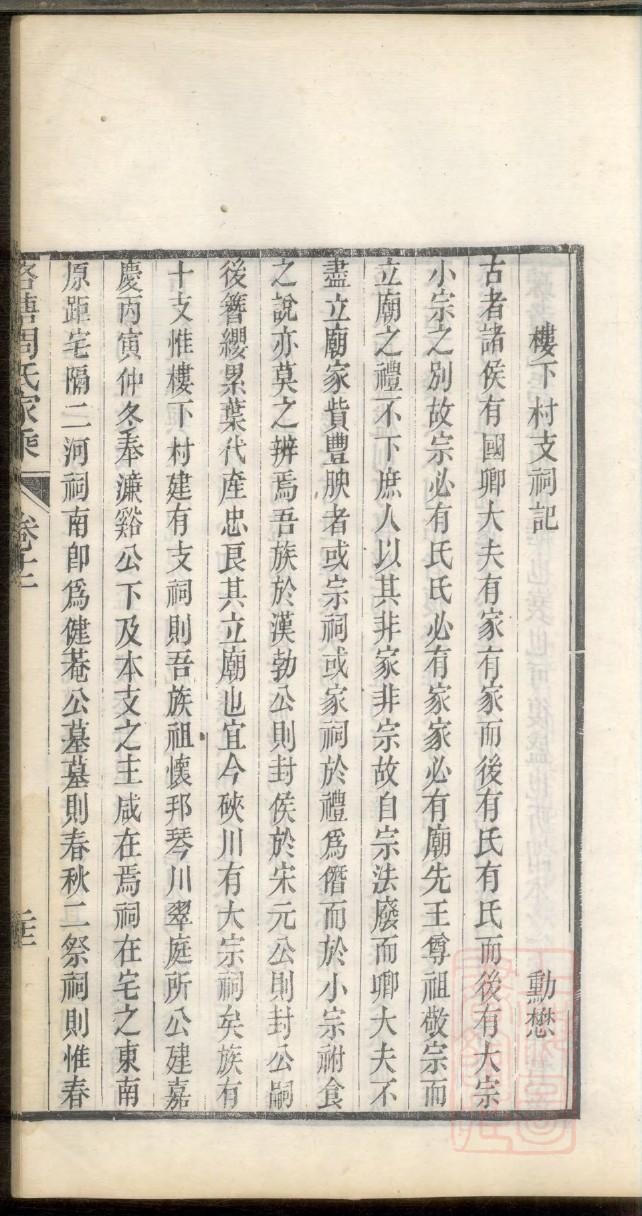 樓下村支祠記 勳懋
古者諸侯有國卿大夫有家有家而後有氏有氏而後有大宗
小宗之別故宗必有氏氏必有家家必有廟先王尊祖敬宗而
立廟之禮不下庶人以其非家非宗故自宗法廢而卿大夫不
盡立廟家貲豐腴者或宗祠或家祠於禮爲僭而於小宗祔食
之說亦莫之辨焉吾族於漢勃公則封侯於宋元公則封公嗣
後簪纓累葉代產忠良其立廟也宜今硤川有大宗祠矣族有
十支惟樓下村建有支祠則吾族祖懷邦琴川翠庭所公建嘉
慶丙寅仲冬奉濂谿公下及本支之主咸在焉祠在宅之東南
原距宅隔二河祠南卽爲健菴公墓墓則春秋二祭祠則惟春
洛塘周氏家乘 卷十二